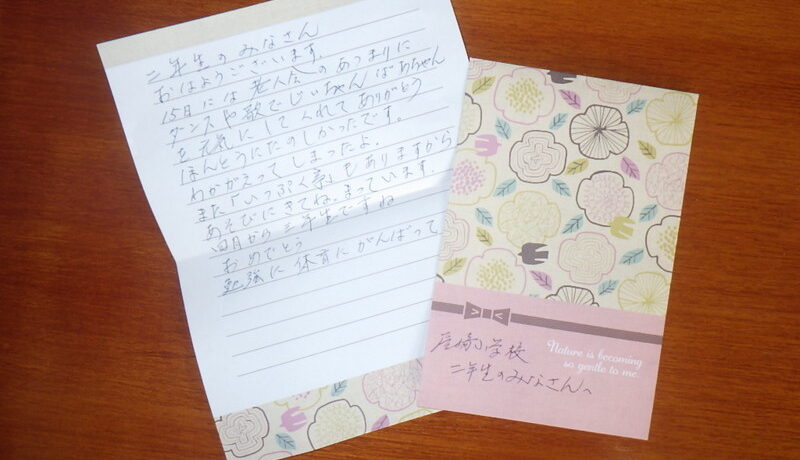 二年生のみなさん
おはようございます。
15日には老人会のあつまりに
ダンスや歌でじいちゃん ばあちゃん
を元気にしてくれてありがとう
ほんとうにたのしかったです。
わかがえってしまったよ。
また「いっぷく亭」もありますから
あそびにきてね。まっています。
四月から三年生ですね
おめでとう
勉強に体育にがんばって
Nature is becoming
so gentle to me.
小学校
二年生のみなさんへ